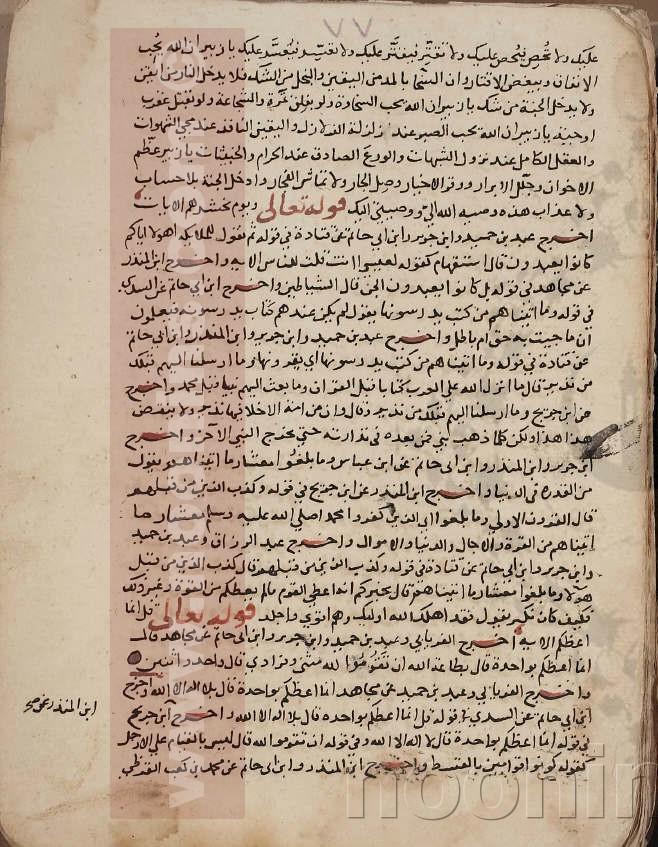 ٧٧
عليك ولا تحصي فيحصى عليك ولا تقتر فيقتر عليك ولا تعسر فيعسر عليك يا زبير ان الله يحب
الانفاق ويبغض الاقتار وان السخا من اليقين والبخل من الشك فلا يدخل النار من ايقن
ولا يدخل الجنة من شك يا زبير ان الله يحب السخاوة ولو بفلق تمرة والشجاعة ولو بقتل عقرب
او حية يا زبير ان الله يحب الصبر عند زلزلة الزلازل واليقين النافذ عند مجي الشهوات
والعقل الكامل عند نزول الشبهات والورع الصادق عند الحرام والخبيثات يا زبير عظم
الاخوان وجلل الابرار ووقر الاخيار وصل الجار ولا تماش الفجار وادخل الجنة بلا حساب
ولا عذاب هذه وصية الله الي ووصيتي اليك قوله تعالى ويوم نحشرهم الايات
اخرج عبد بن حميد وابن جرير وابن ابي حاتم عن قتادة في قوله ثم نقول للملايكة اهولا اياكم
كانوا يعبدون قال استفهام كقوله لعيسى اانت قلت للناس الايه واخرج ابن المنذر
عن مجاهد في قوله بل كانوا يعبدون الجن قال الشياطين واخرج ابن ابي حاتم عن السدي
في قوله وما اتيناهم من كتب يدرسونها يقول لم يكن عندهم كتاب يدرسونه فيعلمون
ان ما جيت به حق ام باطل واخرج عبد بن حميد وابن جرير وابن المنذر وابن ابي حاتم
عن قتادة في قوله وما اتيناهم من كتب يدرسونها اي يقرونها وما ارسلنا اليهم قبلك
من نذير قال ما انزل الله على العرب كتابا قبل القران وما بعث اليهم نبيا قبل محمد واخرج
عن ابن جريج وما ارسلنا اليهم قبلك من نذير وقال وان من امة الا خلا فيها نذير ولا ينقض
هذا هذا ولكن كلما ذهب نبي فمن بعده في نذارته حتى يخرج النبي الاخر واخرج
ابن جرير وابن المنذر وابن ابي حاتم عن ابن عباس وما بلغوا معشار ما اتيناهم يقول
من القدرة في الدنيا واخرج ابن المنذر عن ابن جريج في قوله وكذب الذين من قبلهم
قال القرون الاولى وما بلغوا اي الذين كفروا محمد صلي الله عليه وسلم معشار ما
اتيناهم من القوة والاجال والدنيا والاموال واخرج عبد الرزاق وعبد بن حميد
وابن جرير وابن ابي حاتم عن قتادة في قوله وكذب الذين من قبلهم قال كذب الذين من قبل
هولا وما بلغوا معشار ما اتيناهم قال يخبركم انه اعطى القوم ما لم يعطكم من القوة وغير ذلك
فكيف كان نكير يقول فقد اهلك الله اوليك وهم اقوى واجلد قوله تعالى قل انما
اعظكم الايه اخرج الفريابي وعبد بن حميد وابن جرير وابن ابي حاتم عن مجاهد قال
انما اعظكم بواحدة قال بطاعة الله ان تقوموا لله مثنى وفرادي قال واحد واثنين
واخرج الفريابي وعبد بن حميد عن مجاهد انما اعظكم بواحدة قال بلا اله الا الله واخرج
ابن ابي حاتم عن السدي في قوله قل انما اعظكم بواحده قال بلا اله الا الله واخرج ابن جريج
في قوله انما اعظكم بواحدة قال لا اله الا الله وفي قوله ان تقوموا لله قال ليس بالقيام على الارجل
كقوله كونوا قوامين بالقسط واخرج ابن المنذر وابن ابي حاتم عن محمد بن كعب القرظي
ابن المنذر عن صح
noonin